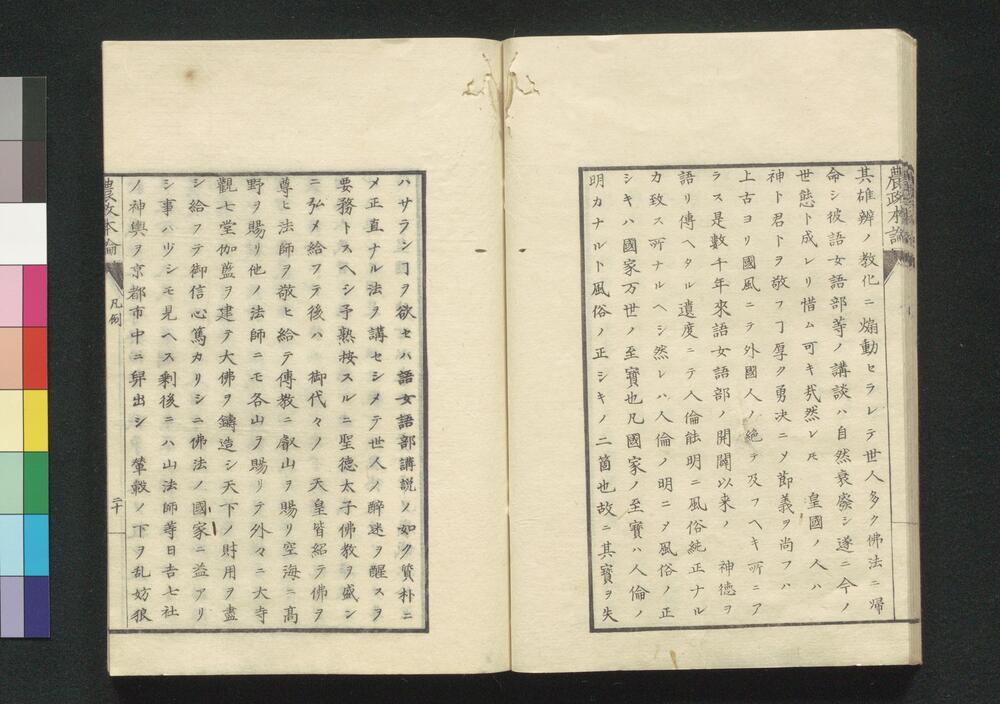 農政本論
其雄辨ノ教化ニ煽動ヒラレテ世人多ク佛法ニ歸
命シ彼語女語部等ノ講談ハ自然衰廢シ遂ニ今ノ
世態ト成レリ惜ム可キ㢤然レ𪜈　皇國ノ人ハ
神ト君トヲ敬フヿ厚ク勇决ニメ節義ヲ尚フハ
上古ヨリ國風ニテ外國人ノ絶テ及フヘキ所ニア
ラス是數千年來語女語部ノ開闢以来ノ　神德ヲ
語リ傳ヘタル遺度ニテ人倫能明ニ風俗純正ナル
カ致ス所ナルヘシ然レハ人倫ノ明ニメ風俗ノ正
シキハ國家万世ノ至寶也凡國家ノ至寶ハ人倫ノ
明カナルト風俗ノ正シキノ二箇也故ニ其寶ヲ失
ハサランヿヲ欲セハ語女語部講説ノ如ク質朴ニ
メ正直ナル法ヲ講セシメテ世人ノ醉迷ヲ醒スヲ
要務トスヘシ予熟按スルニ聖德太子佛教ヲ盛ン
ニ弘メ給フテ後ハ　御代々ノ　天皇皆紹テ佛ヲ
尊ヒ法師ヲ敬ヒ給テ傳教ニ叡山ヲ賜リ空海ニ髙
野ヲ賜リ他ノ法師ニモ各山ヲ賜リテ外々ニ大寺
觀七堂伽藍ヲ建テ大佛ヲ鑄造シ天下ノ財用ヲ盡
シ給フテ御信心篤カリシニ佛法ノ國家ニ益アリ
シ事ハツシモ見ヘス剰後ニハ山法師等日吉七社
ノ神輿ヲ京都市中ニ舁出シ　輦轂ノ下ヲ乱妨狼
農政本論
凡例
二十